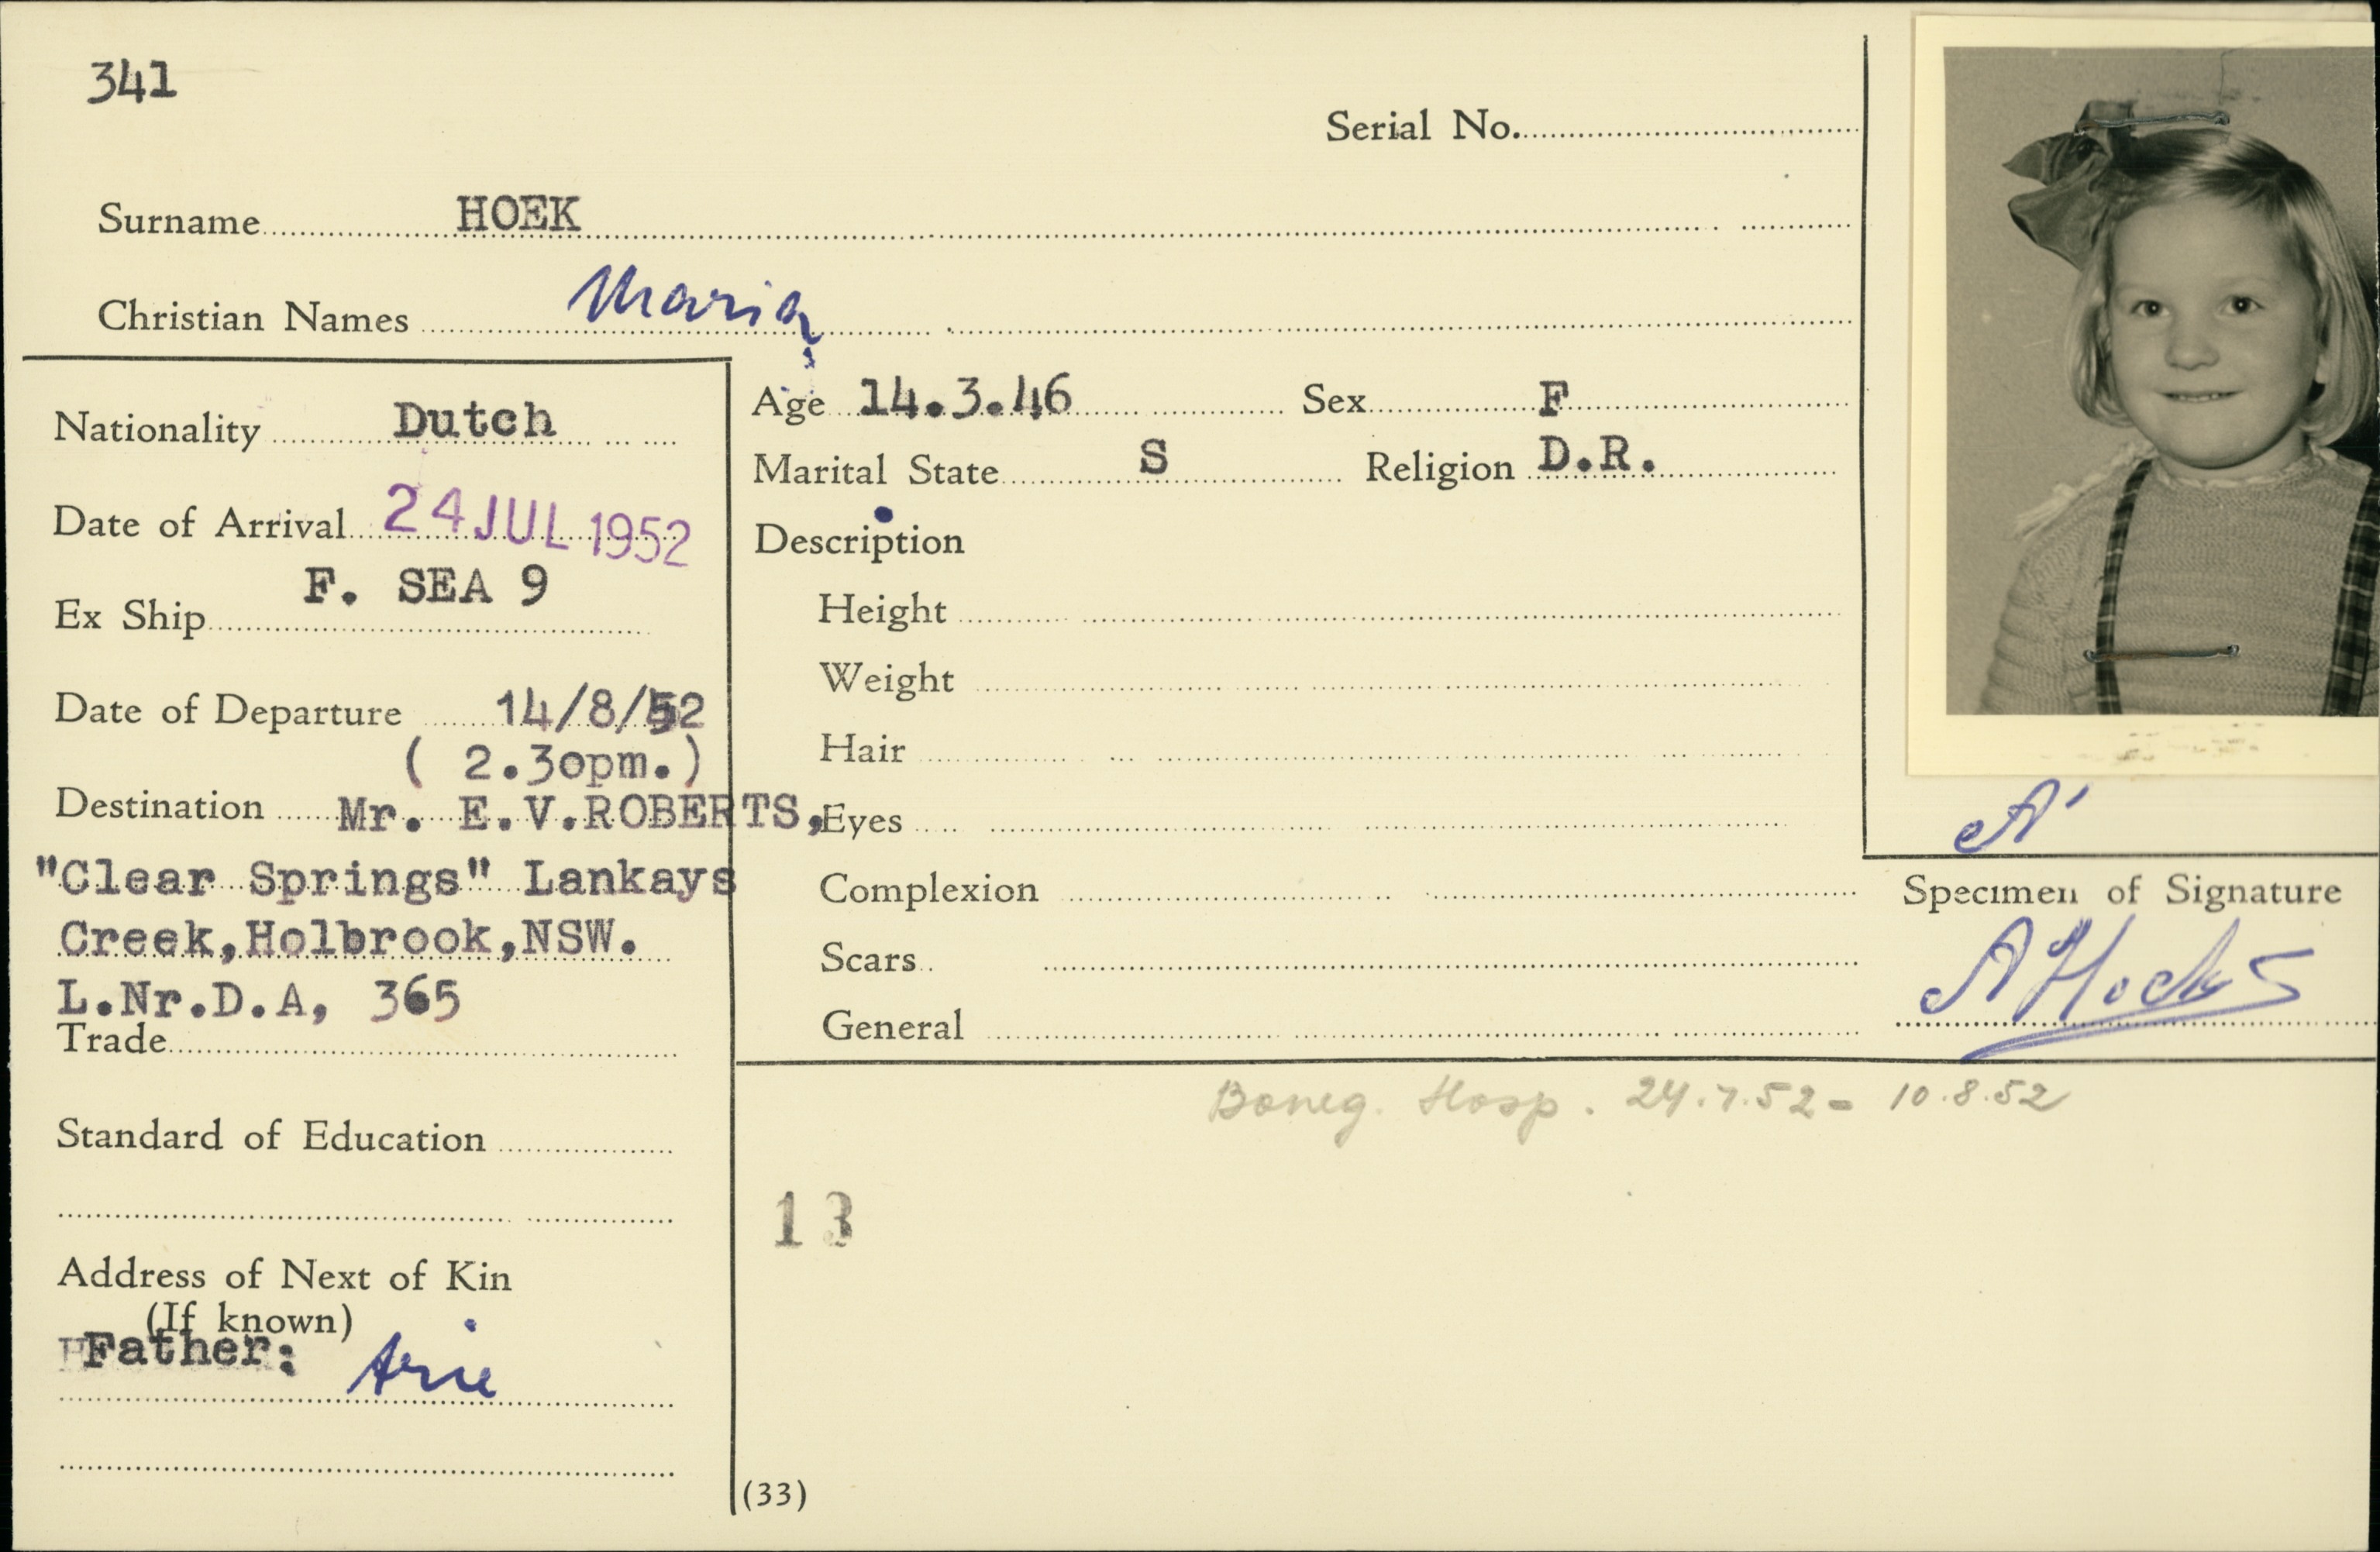 341
Serial No.
Surname HOEK
Christian Names Maria
Nationality Dutch
Date of Arrival 24 JUL 1952
Ex Ship F. SEA 9
Date of Departure 14/8/52
( 2.30pm.)
Destination Mr. E.V.ROBERTS,
"Clear Springs" Lankays
Creek,Holbrook,NSW.
L.Nr.D.A, 365
Trade
Standard of Education
Address of Next of Kin
(If known)
Father: Arie
Age 14.3.46 Sex F
Marital State S Religion D.R.
Description
Height
Weight
Hair
Eyes
Complexion
Scars
General
Specimen of Signature
Boneg. Hosp. 24.7.52 - 10.8.52
13
(33)